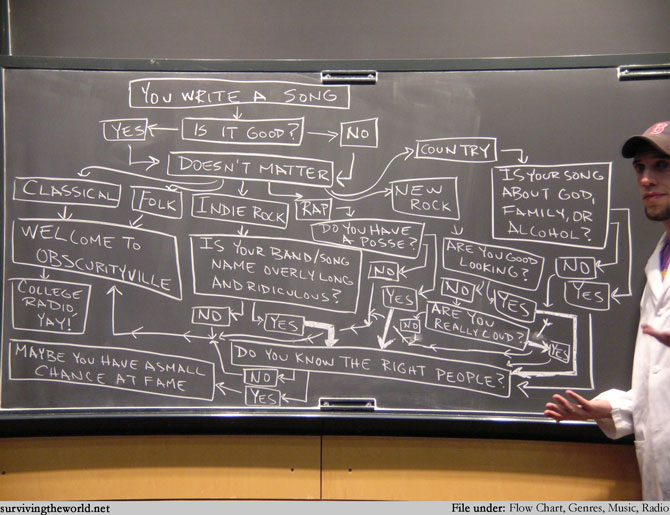 YOU WRITE A SONG
YES
IS IT GOOD?
NO
DOESN'T MATTER
COUNTRY
CLASSICAL
FOLK
INDIE ROCK
RAP
NEW
ROCK
IS YOUR SONG
ABOUT GOD,
FAMILY, OR
ALCOHOL?
WELCOME TO
OBSCURITYVILLE
IS YOUR BAND/SONG
NAME OVERLY LONG
AND RIDICULOUS?
DO YOU HAVE
A POSSE?
ARE YOU GOOD
LOOKING?
NO
YES
COLLEGE
RADIO,
YAY!
NO
YES
NO
YES
NO
YES
ARE YOU
REALLY LOUD?
NO
YES
DO YOU KNOW THE RIGHT PEOPLE?
NO
YES
MAYBE YOU HAVE A SMALL
CHANCE AT FAME
survivingtheworld.net
File under: Flow Chart, Genres, Music, Radio